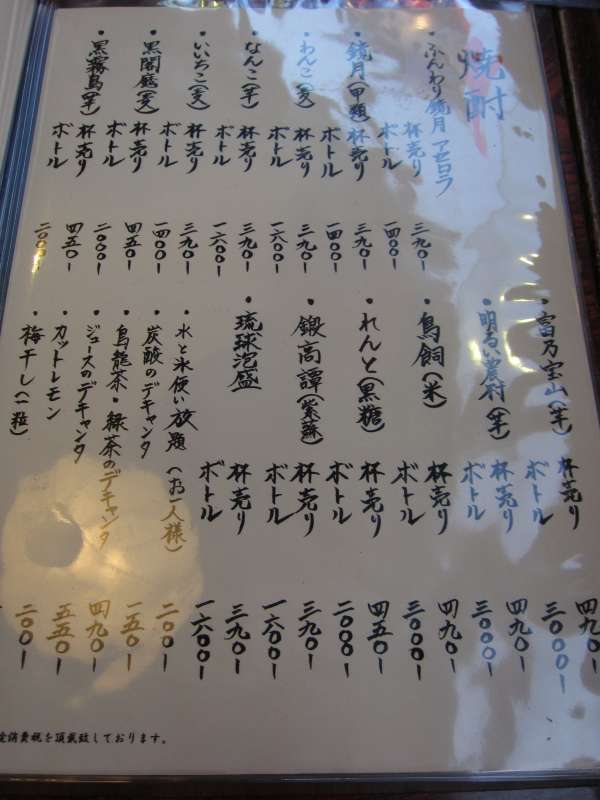 焼酎
・ふんわり鏡月 アセロラ 杯売り 三九〇ー
ボトル 一四〇〇ー
・鏡月(甲類) 杯売り 三九〇ー
ボトル 一四〇〇ー
・わんこ(麦) 杯売り 三九〇ー
ボトル 一六〇〇ー
・なんこ(芋) 杯売り 三九〇ー
ボトル 一六〇〇ー
・いいちこ(麦) 杯売り 三九〇ー
ボトル 一四〇〇ー
・黒閻魔(麦) 杯売り 四五〇ー
ボトル 二〇〇〇ー
・黒霧島(芋) 杯売り 四五〇ー
ボトル 二〇〇〇ー
・富乃宝山(芋) 杯売り 四九〇ー
ボトル 三〇〇〇ー
・明るい農村(芋) 杯売り 四九〇ー
ボトル 三〇〇〇ー
・鳥飼(米) 杯売り 四九〇ー
ボトル 三〇〇〇ー
・れんと(黒糖) 杯売り 四五〇ー
ボトル 二〇〇〇ー
・鍛高譚(紫蘇) 杯売り 三九〇ー
ボトル 一六〇〇ー
・琉球泡盛 杯売り 三九〇ー
ボトル 一六〇〇ー
・水と氷使い放題(お一人様) 二〇〇ー
・炭酸のデキャンタ 一五〇ー
・烏龍茶・緑茶のデキャンタ 四九〇ー
・ジュースのデキャンタ 五五〇ー
・カットレモン 二〇〇ー
・梅干し(一粒)
消費税を頂戴致しております。